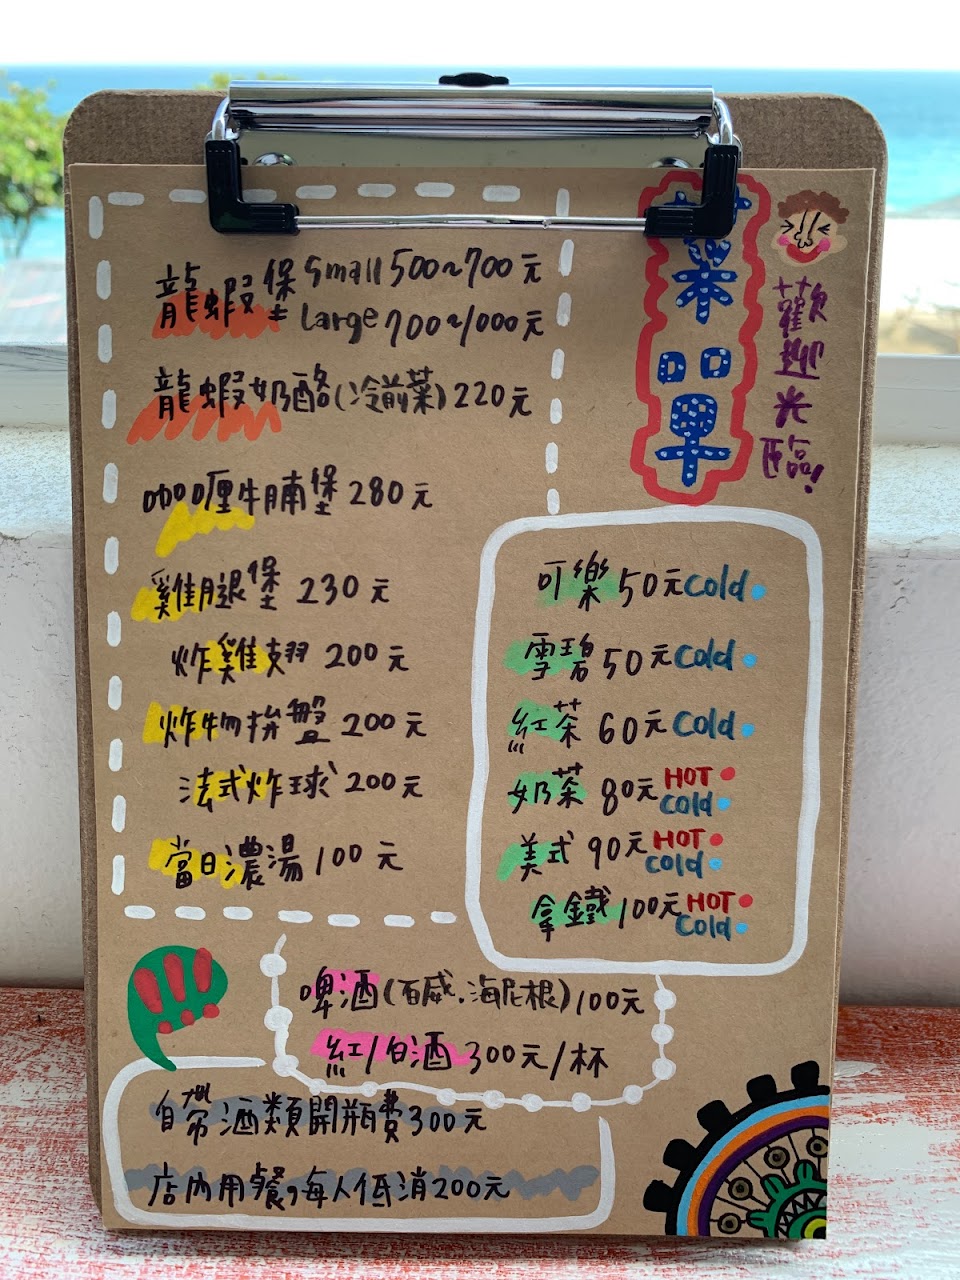 菜單
歡迎光臨!
龍蝦堡 Small 500~700元
Large 700~1000元
龍蝦奶酪(冷前菜)220元
咖喱牛腩堡 280元
雞腿堡 230元
炸雞翅 200元
炸物拚盤 200元
法式炸球 200元
當日濃湯 100元
可樂 50元 Cold
雪碧 50元 Cold
紅茶 60元 Cold
奶茶 80元 HOT Cold
美式 90元 HOT Cold
拿鐵 100元 HOT Cold
啤酒(百威.海尼根)100元
紅/白酒 300元/杯
自帶酒類開瓶費300元
店內用餐,每人低消200元